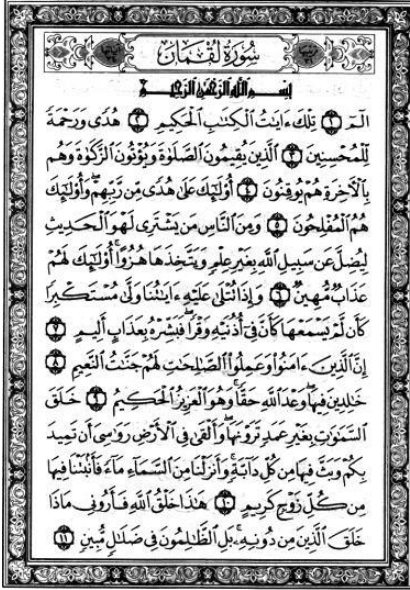 سُورَةُ لُقْمَانَ
بِسْمِ ٱللَّهِ ٱلرَّحْمَٰنِ ٱلرَّحِيمِ
الٓمٓ ۝١ تِلْكَ ءَايَٰتُ ٱلْكِتَٰبِ ٱلْحَكِيمِ ۝٢ هُدًى وَرَحْمَةً
لِّلْمُحْسِنِينَ ۝٣ ٱلَّذِينَ يُقِيمُونَ ٱلصَّلَوٰةَ وَيُؤْتُونَ ٱلزَّكَوٰةَ وَهُم
بِٱلْءَاخِرَةِ هُمْ يُوقِنُونَ ۝٤ أُو۟لَٰٓئِكَ عَلَىٰ هُدًى مِّن رَّبِّهِمْ ۖ وَأُو۟لَٰٓئِكَ
هُمُ ٱلْمُفْلِحُونَ ۝٥ وَمِنَ ٱلنَّاسِ مَن يَشْتَرِى لَهْوَ ٱلْحَدِيثِ
لِيُضِلَّ عَن سَبِيلِ ٱللَّهِ بِغَيْرِ عِلْمٍ وَيَتَّخِذَهَا هُزُوًا ۚ أُو۟لَٰٓئِكَ لَهُمْ
عَذَابٌ مُّهِينٌ ۝٦ وَإِذَا تُتْلَىٰ عَلَيْهِ ءَايَٰتُنَا وَلَّىٰ مُسْتَكْبِرًا
كَأَن لَّمْ يَسْمَعْهَا كَأَنَّ فِىٓ أُذُنَيْهِ وَقْرًا ۖ فَبَشِّرْهُ بِعَذَابٍ أَلِيمٍ ۝٧
إِنَّ ٱلَّذِينَ ءَامَنُوا۟ وَعَمِلُوا۟ ٱلصَّٰلِحَٰتِ لَهُمْ جَنَّٰتُ ٱلنَّعِيمِ ۝٨
خَٰلِدِينَ فِيهَا ۖ وَعْدَ ٱللَّهِ حَقًّا ۚ وَهُوَ ٱلْعَزِيزُ ٱلْحَكِيمُ ۝٩ خَلَقَ
ٱلسَّمَٰوَٰتِ بِغَيْرِ عَمَدٍ تَرَوْنَهَا ۖ وَأَلْقَىٰ فِى ٱلْأَرْضِ رَوَٰسِىَ أَن تَمِيدَ
بِكُمْ وَبَثَّ فِيهَا مِن كُلِّ دَآبَّةٍ ۚ وَأَنزَلْنَا مِنَ ٱلسَّمَآءِ مَآءً فَأَنۢبَتْنَا فِيهَا
مِن كُلِّ زَوْجٍ كَرِيمٍ ۝١٠ هَٰذَا خَلْقُ ٱللَّهِ فَأَرُونِى مَاذَا
خَلَقَ ٱلَّذِينَ مِن دُونِهِۦ ۚ بَلِ ٱلظَّٰلِمُونَ فِى ضَلَٰلٍ مُّبِينٍ ۝١١